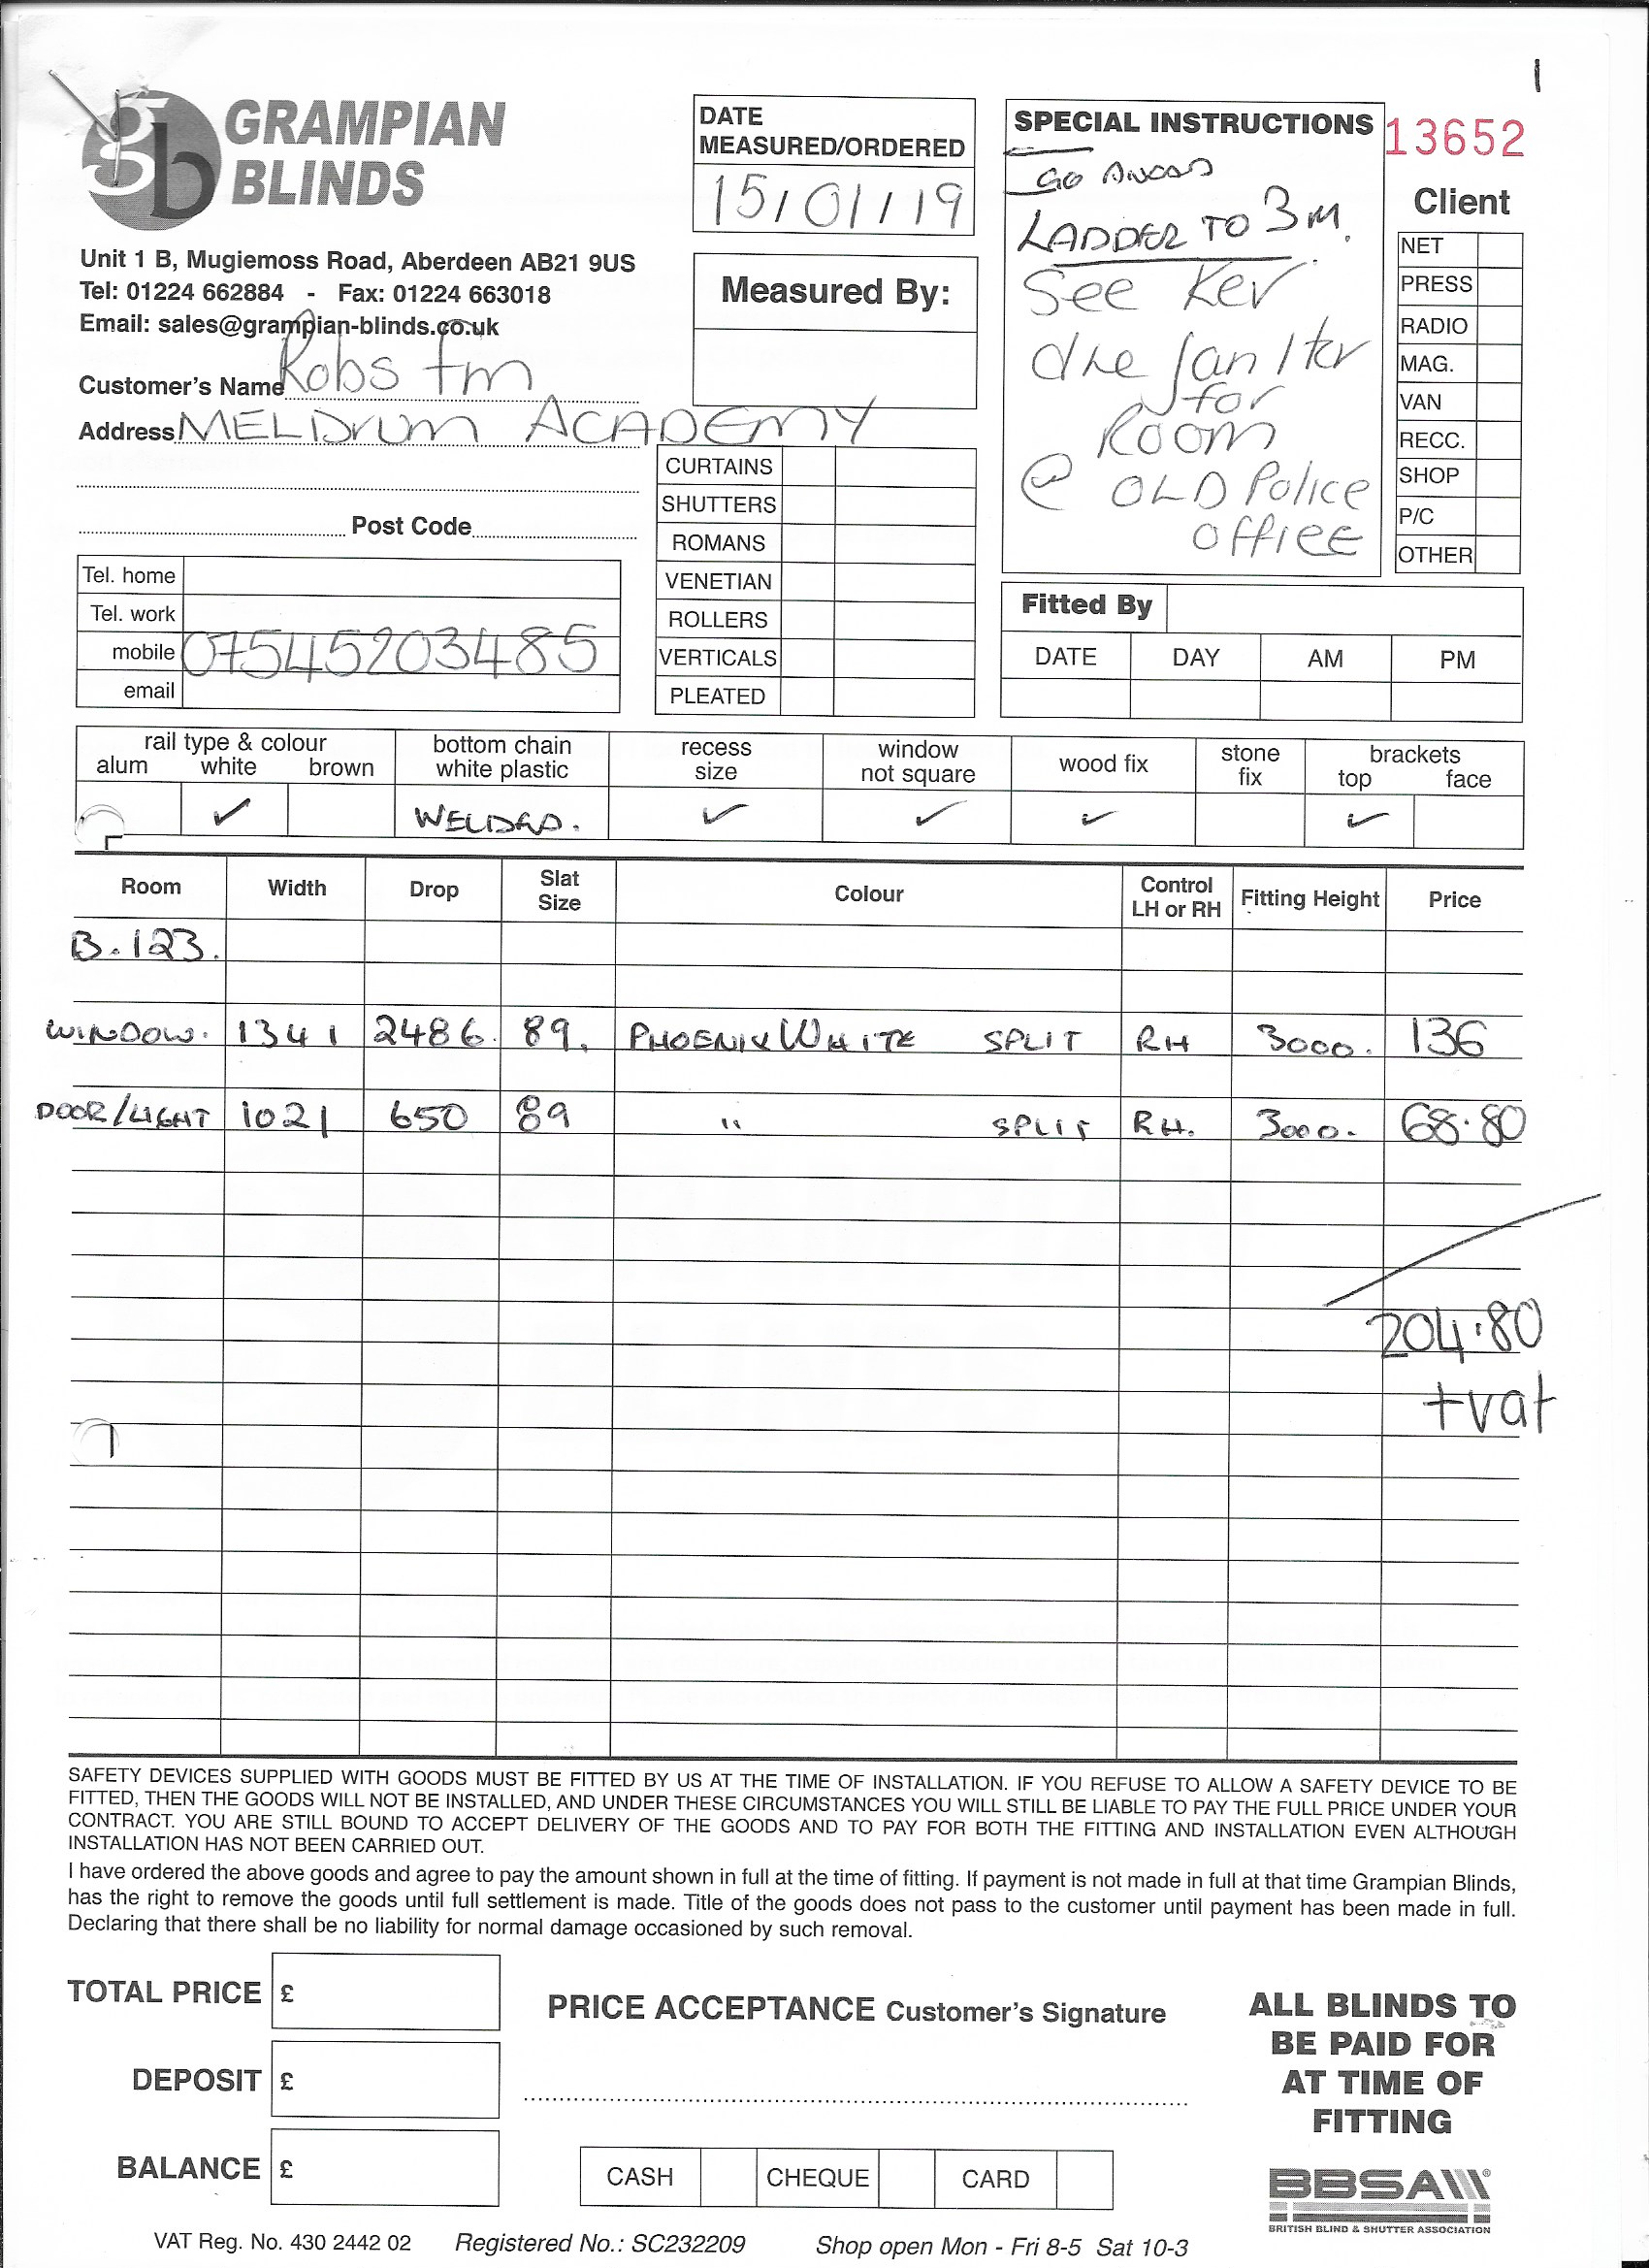 1
GRAMPIAN
BLINDS
Unit 1 B, Mugiemoss Road, Aberdeen AB21 9US
Tel: 01224 662884 - Fax: 01224 663018
Email: sales@grampian-blinds.co.uk
Customer's Name Robs fm
Address MELDrum ACADEMY
Post Code
Tel. home
Tel. work
mobile 07545203485
email
DATE
MEASURED/ORDERED
15/01/19
Measured By:
CURTAINS
SHUTTERS
ROMANS
VENETIAN
ROLLERS
VERTICALS
PLEATED
SPECIAL INSTRUCTIONS
GO
LADDER TO 3M.
See Kev
the Janitor
for
Room
@ OLD Police
officE
13652
Client
NET
PRESS
RADIO
MAG.
VAN
RECC.
SHOP
P/C
OTHER
Fitted By
DATE DAY AM PM
rail type & colour
alum white brown
bottom chain
white plastic
recess
size
window
not square
wood fix
stone
fix
brackets
top face
✓ WELDED. ✓ ✓ ✓ ✓
Room Width Drop Slat Size Colour Control LH or RH Fitting Height Price
B.123.
WINDOW. 1341 2486. 89. PHOENIX WHITE SPLIT RH 3000. 136
DOOR/LIGHT 1021 650 89 " SPLIT RH. 3000. 68.80
204.80
+vat
SAFETY DEVICES SUPPLIED WITH GOODS MUST BE FITTED BY US AT THE TIME OF INSTALLATION. IF YOU REFUSE TO ALLOW A SAFETY DEVICE TO BE
FITTED, THEN THE GOODS WILL NOT BE INSTALLED, AND UNDER THESE CIRCUMSTANCES YOU WILL STILL BE LIABLE TO PAY THE FULL PRICE UNDER YOUR
CONTRACT. YOU ARE STILL BOUND TO ACCEPT DELIVERY OF THE GOODS AND TO PAY FOR BOTH THE FITTING AND INSTALLATION EVEN ALTHOUGH
INSTALLATION HAS NOT BEEN CARRIED OUT.
I have ordered the above goods and agree to pay the amount shown in full at the time of fitting. If payment is not made in full at that time Grampian Blinds,
has the right to remove the goods until full settlement is made. Title of the goods does not pass to the customer until payment has been made in full.
Declaring that there shall be no liability for normal damage occasioned by such removal.
TOTAL PRICE £
DEPOSIT £
BALANCE £
PRICE ACCEPTANCE Customer's Signature
CASH CHEQUE CARD
ALL BLINDS TO
BE PAID FOR
AT TIME OF
FITTING
BBSA
BRITISH BLIND & SHUTTER ASSOCIATION
VAT Reg. No. 430 2442 02 Registered No.: SC232209 Shop open Mon - Fri 8-5 Sat 10-3